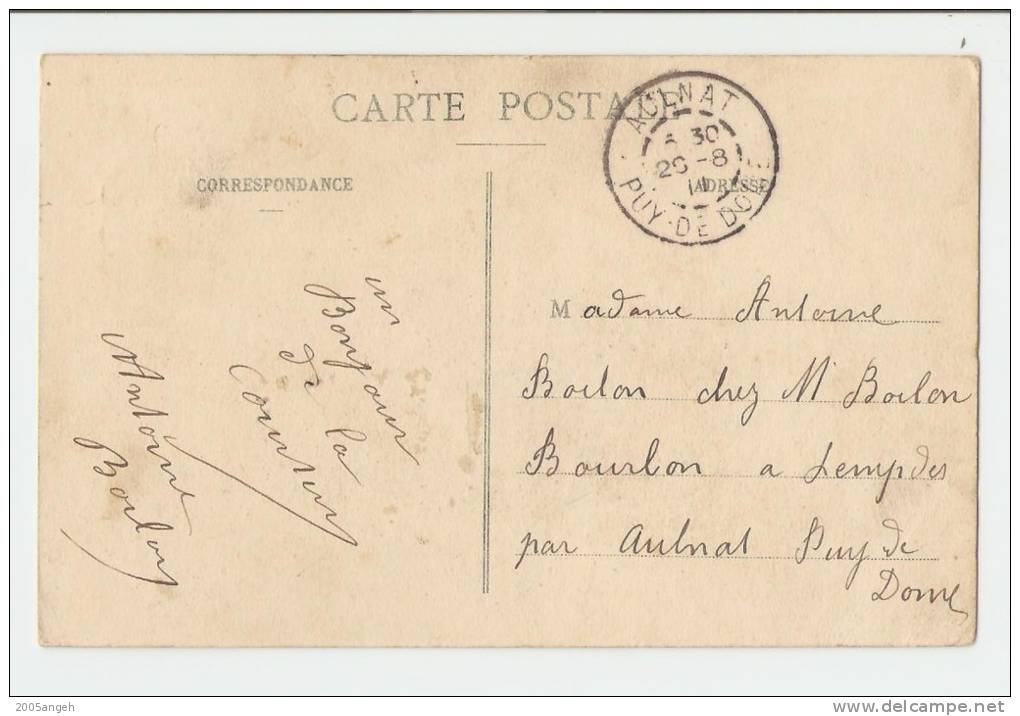 CARTE POSTALE
AULNAT
30
26-8
11
PUY-DE DOME
CORRESPONDANCE
ADRESSE
un
Bonjour
de la
Antoine
Boilon
Madame Antoine
Boilon chez Mr Boilon
Bourbon a Lempdes
par Aulnat Puy de
Dome
2005angeh
delcampe.net